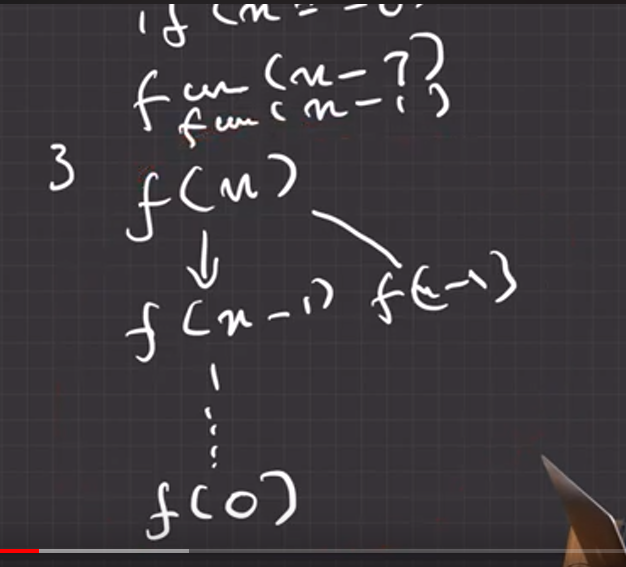 if (n = = 0)
fun (n - 1)
fun (n - 1)
3 f(n)
f(n-1) f(n-1)
f(0)